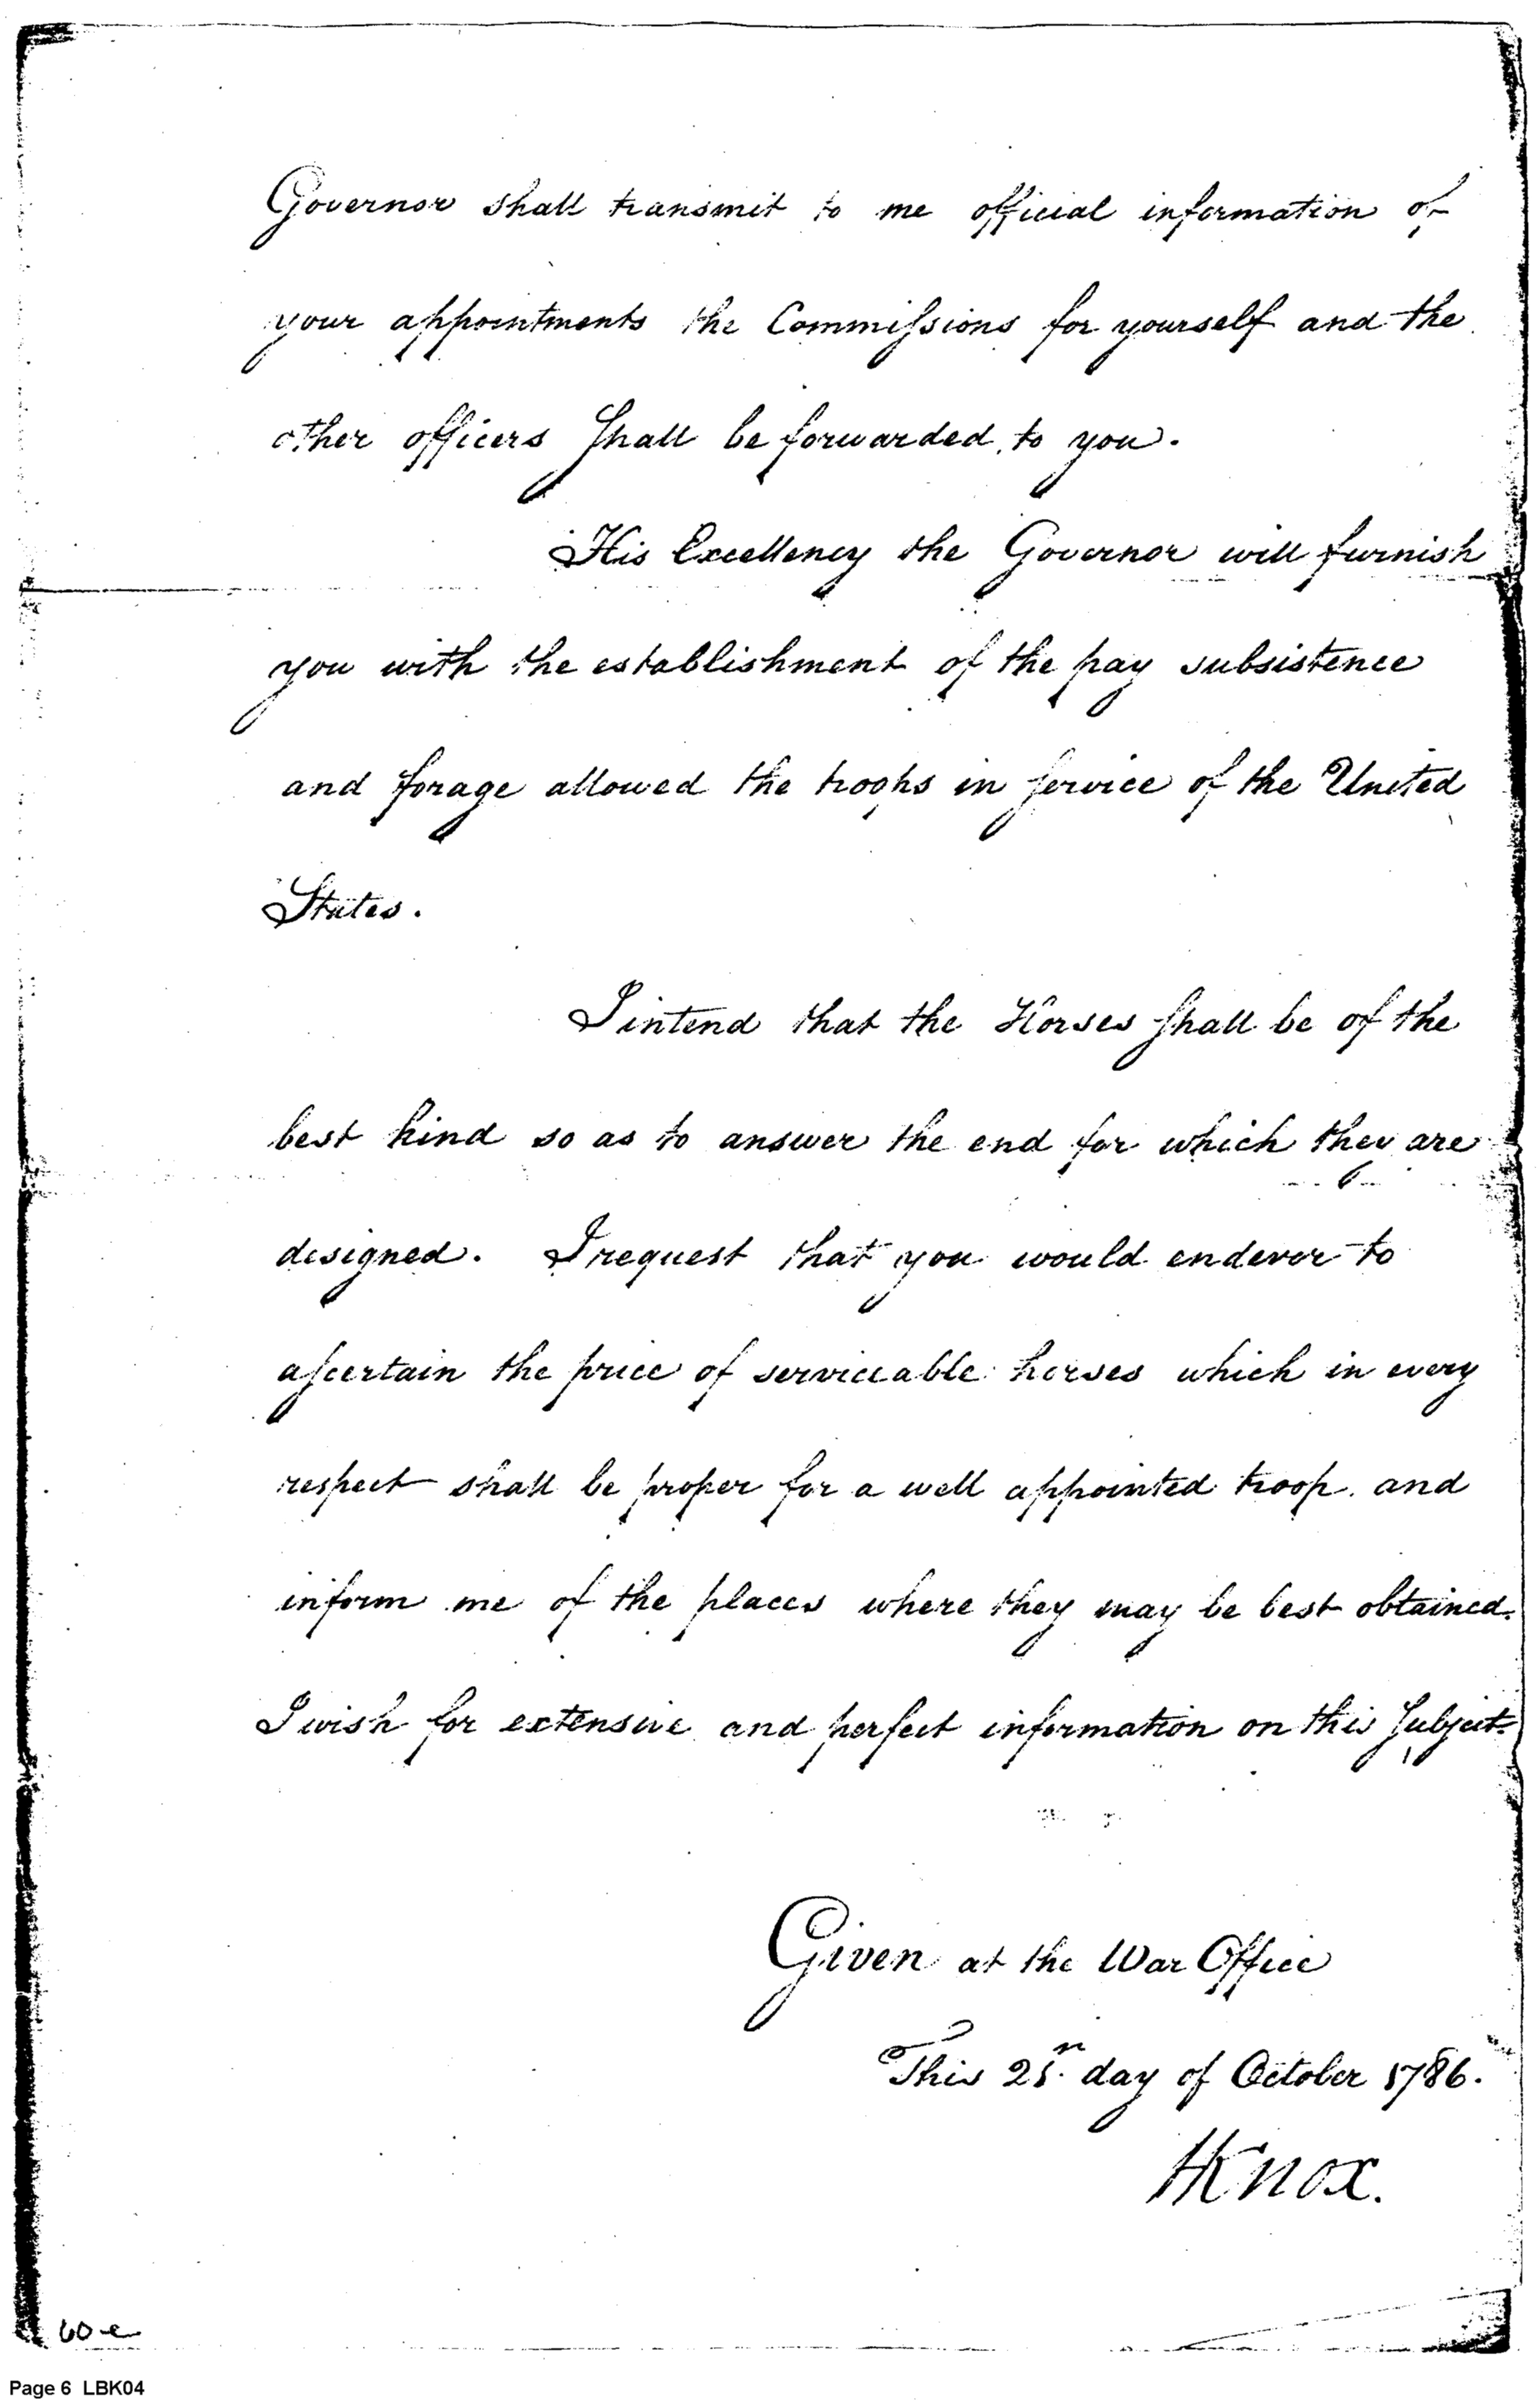 Governor shall transmit to me official information of
your appointments the Commiſsions for yourself and the
other officers ſhall be forwarded to you.
His Excellency the Governor will furnish
you with the establishment of the pay subsistence
and forage allowed the troops in ſervice of the United
States.
I intend that the Horses ſhall be of the
best kind so as to answer the end for which they are
designed. I request that you would endevor to
aſcertain the price of serviceable horses which in every
respect shall be proper for a well appointed troop. and
inform me of the places where they may be best obtained.
I wish for extensive and perfect information on this ſubject.
Given at the War Office
This 25th. day of October 1786.
HKnox.
60-e
Page 6 LBK04